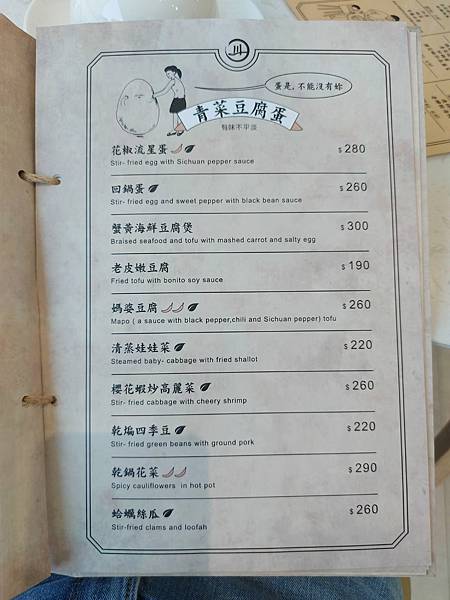 川
蛋是,不能沒有妳
青菜豆腐蛋
有味不平淡
花椒流星蛋 $280
Stir- fried egg with Sichuan pepper sauce
回鍋蛋 $260
Stir- fried egg and sweet pepper with black bean sauce
蟹黃海鮮豆腐煲 $300
Braised seafood and tofu with mashed carrot and salty egg
老皮嫩豆腐 $190
Fried tofu with bonito soy sauce
媽婆豆腐 $260
Mapo ( a sauce with black pepper,chili and Sichuan pepper) tofu
清蒸娃娃菜 $220
Steamed baby- cabbage with fried shallot
櫻花蝦炒高麗菜 $260
Stir- fried cabbage with cheery shrimp
乾煸四季豆 $220
Stir- fried green beans with ground pork
乾鍋花菜 $290
Spicy cauliflowers in hot pot
蛤蠣絲瓜 $260
Stir-fried clams and loofah